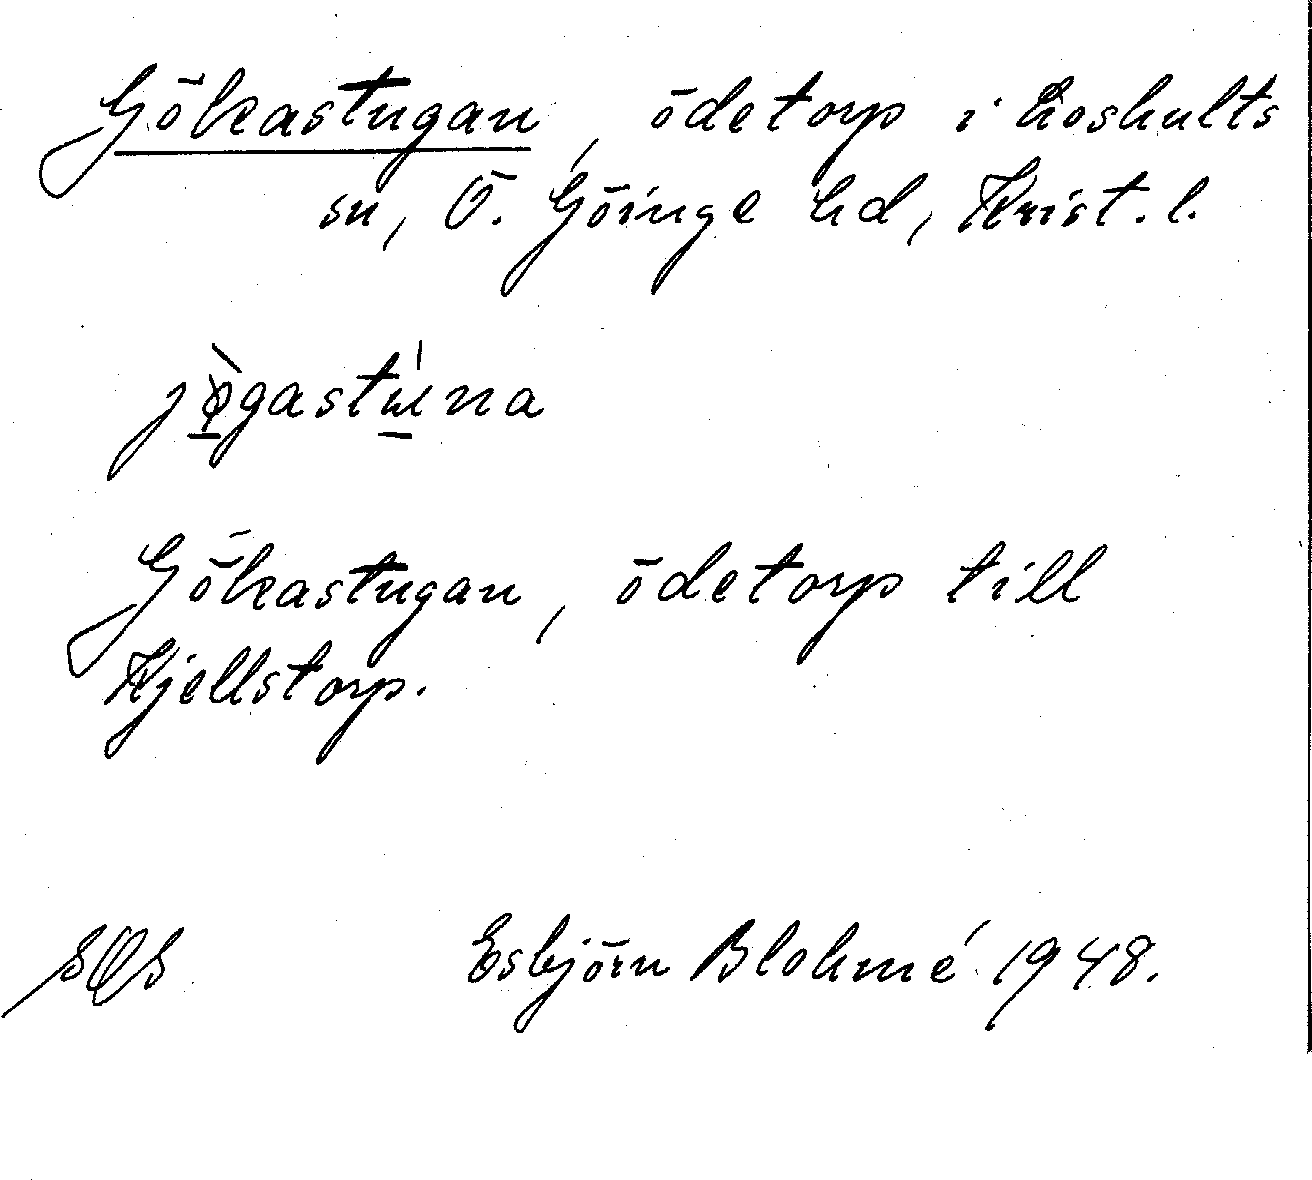 Gökastugan, ödetorp i Loshults
sn, Ö. Göinge hd, Krist. l.
Gökastugan, ödetorp till
Kjellstorp.
Esbjörn Blohmé 1948.